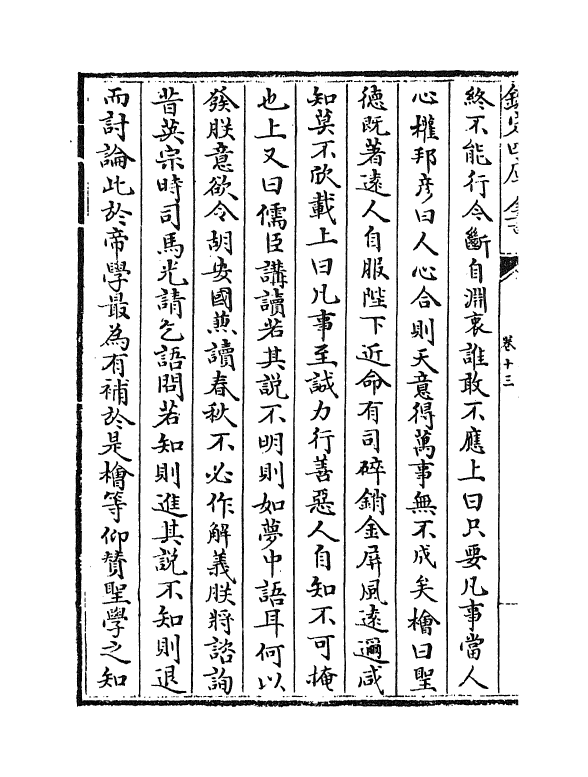 欽定四庫全書
卷十三
終不能行今斷自淵衷誰敢不應上曰只要凡事當人
心權邦彦曰人心合則天意得萬事無不成矣檜曰聖
德既著逺人自服陛下近命有司碎銷金屏風逺邇咸
知莫不欣載上曰凡事至誠力行善惡人自知不可掩
也上又曰儒臣講讀若其説不明則如夢中語耳何以
發朕意欲令胡安國兼讀春秋不必作解義朕將諮詢
昔英宗時司馬光請乞語問若知則進其説不知則退
而討論此於帝學最為有補於是檜等仰賛聖學之知